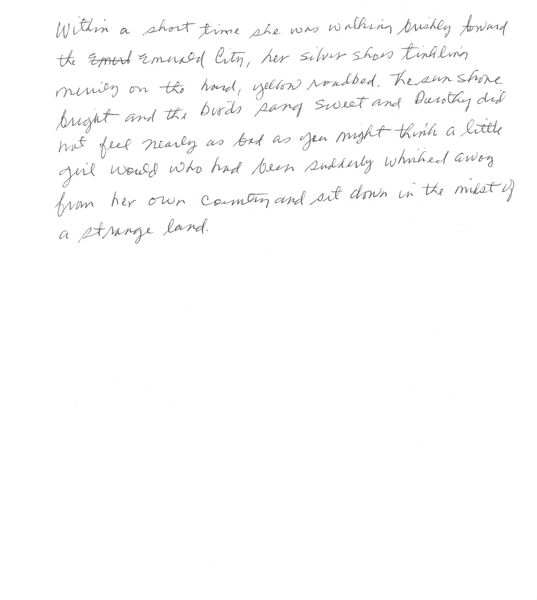 Within a short time she was walking briskly toward
the Emerld Emerald City, her silver shoes tinkling
merrily on the hard, yellow roadbed. The sun shone
bright and the birds sang sweet and Dorothy did
not feel nearly as bad as you might think a little
girl would who had been suddenly whisked away
from her own country and sit down in the midst of
a strange land.